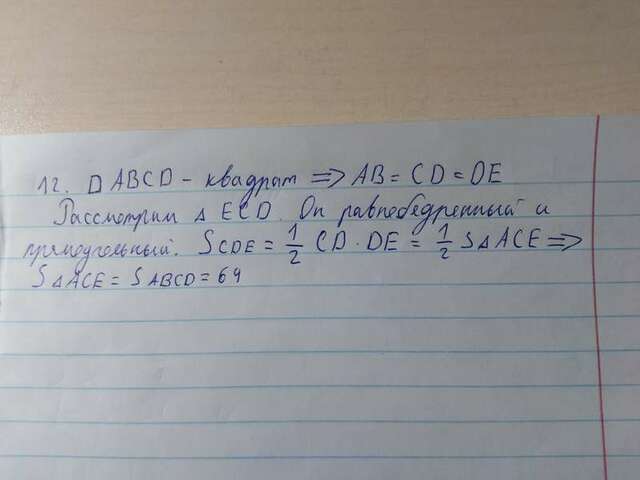 12. □ ABCD - квадрат => AB = CD = DE
Рассмотрим △ ECD. Он равнобедренный и
прямоугольный. S CDE = 1/2 CD · DE = 1/2 S△ACE =>
S△ACE = S ABCD = 64